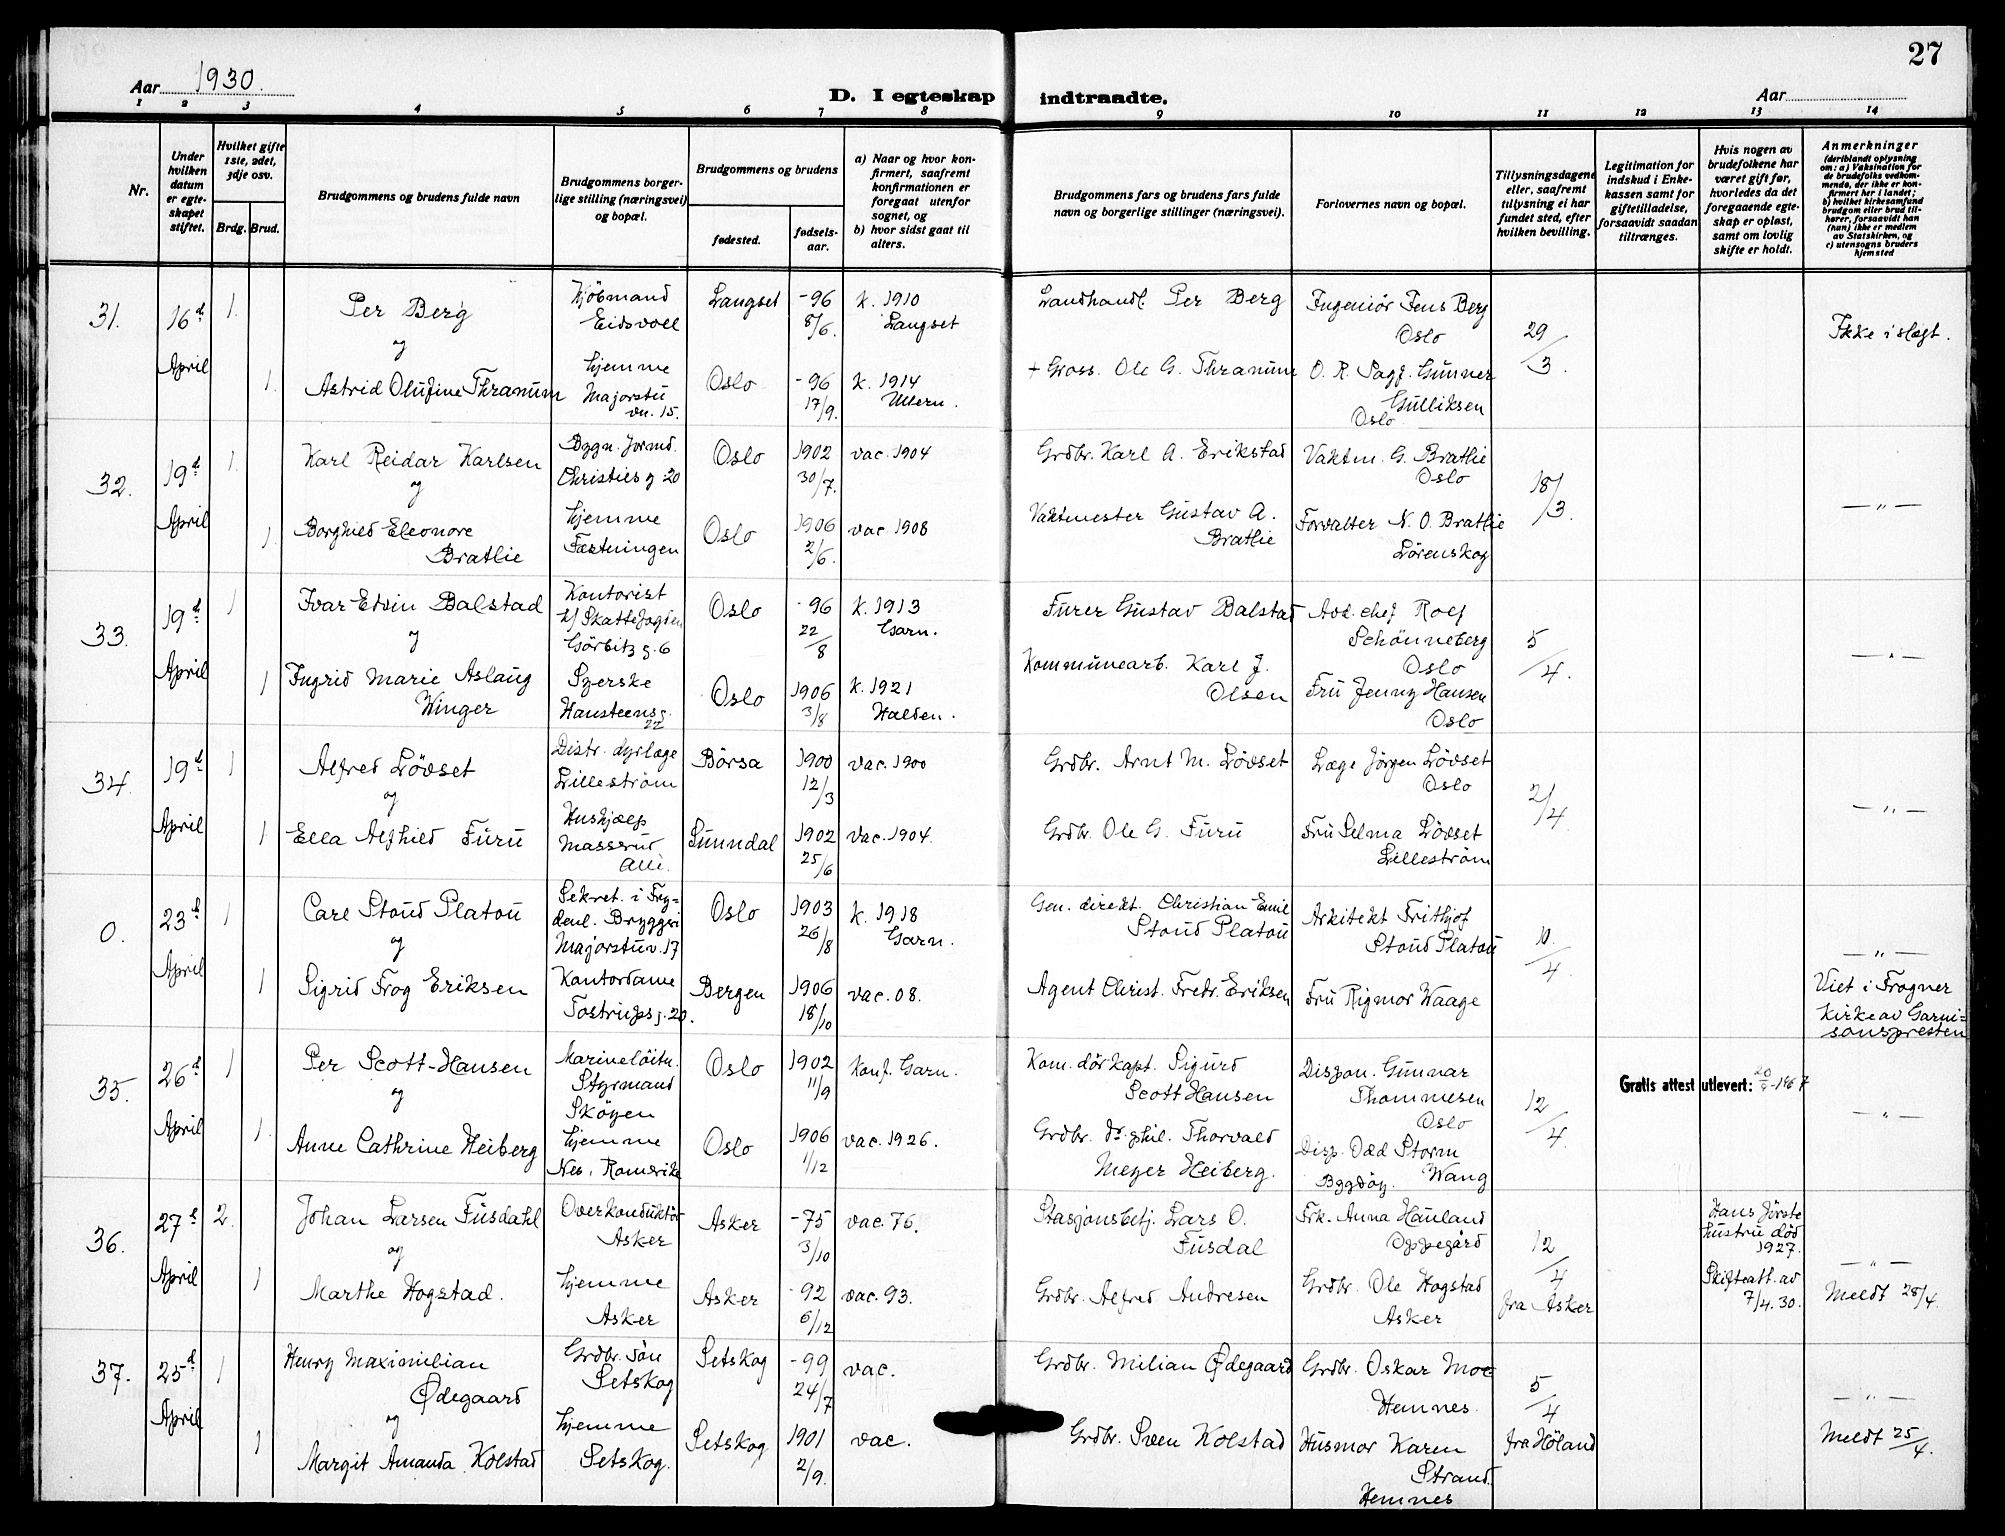 27
Aar 1930.
D. I egteskap indtraadte.
Aar
1 2 3 4 5 6 7 8 9 10 11 12 13 14
Nr.
Under hvilken datum er egte-skapet stiftet.
Hvilket gifte 1ste, 2det, 3dje osv.
Brdg. Brud.
Brudgommens og brudens fulde navn
Brudgommens borger-lige stilling (næringsvei) og bopæl.
Brudgommens og brudens
fødested.
fødsels-aar.
a) Naar og hvor kon-firmert, saafremt konfirmationen er foregaat utenfor sognet, og
b) hvor sidst gaat til alters.
Brudgommens fars og brudens fars fulde navn og borgerlige stillinger (næringsvei).
Forlovernes navn og bopæl.
Tillysningsdagene eller, saafremt tillysning ei har fundet sted, efter hvilken bevilling.
Legitimation for indskud i Enke-kassen samt for giftetilladelse, forsaavidt saadan tiltrænges.
Hvis nogen av brudefolkene har været gift før, hvorledes da det foregaaende egte-skap er opløst, samt om lovlig skifte er holdt.
Anmerkninger
(deriblandt oplysning om: a) Vaksination for de brudefolks vedkom-mende, der ikke er kon-firmert her i landet; b) hvilket kirkesamfund brudgom eller brud til-hører, forsaavidt han (hun) ikke er medlem av Statskirken, og c) utensogns bruders hjemsted
31. 16d April 1. Per Berg Kjöbmand Eidsvoll Langset -96 8/6. k. 1910 Langset Landhandl. Per Berg Ingeniör Jens Berg Oslo 29/3. Ikke i slegt.
og
1. Astrid Olufine Thranum hjemme Majorstu vn. 15. Oslo -96 17/9. k. 1914 Ullern. + Gross. Ole G. Thranum O. R. Sagf. Gunner Gulliksen Oslo
32. 19d April 1. Karl Reidar Karlsen Bygn. formd. Christies g 20 Oslo 1902 30/7. vac. 1904 Grdbr. Karl A. Erikstad Vaktm. G. Bratlie Oslo 18/3. — " —
og
1. Borghild Eleonore Bratlie hjemme Fæstningen Oslo 1906 2/6. vac. 1908 Vaktmester Gustav A. Bratlie Forvalter N. O. Bratlie Lörenskog
33. 19d April 1 Ivar Edvin Balstad Kontorist h/ Skattefogden Görbitz g. 6 Oslo -96 22/8 k. 1913 Garn. Furer Gustav Balstad Avd. chef Rolf Schönneberg Oslo 5/4. — " —
og
1 Ingrid Marie Aslaug Winger Syerske Hansteens g. 22 Oslo 1906 3/8 k. 1921 Halden. Kommunearb. Karl J. Olsen Fru Jenny Hansen Oslo
34. 19d April 1 Alfred Lövset Distr. dyrlæge Lilleström Börsa 1900 12/3 vac. 1900 Grdbr. Arnt M. Lövset Læge Jörgen Lövset Oslo 2/4 — " —
og
1 Ella Alfhild Furu Hushjælp Massrud Allé. Sunndal 1902 25/6 vac. 1904. Grdbr. Ole G. Furu Fru Selma Lövset Lilleström
0. 23d April 1 Carl Stoud Platou Sekret. i Fry=denl. Bryggeri Majorstuv. 17 Oslo 1903 26/8 k. 1918 Garn. Gen. direkt. Christian Emil Stoud Platou Arkitekt Frithjof Stoud Platou 10./4. — " —
og
1 Sigrid Frog Eriksen Kontordame Tostrupsg. 20. Bergen 1906 18/10 vac. 08. Agent Christ. Fredr. Eriksen Fru Rigmor Waage Viet i Frogner Kirke av Garni=sonspresten
35. 26d April 1 Per Scott-Hansen Marinelöitn. Styrmand Sköyen Oslo 1902 11/9 Konf. Garn. Kom. dörkapt. Sigurd Scott Hansen Dispon. Gunnar Thommesen Oslo 12/4. Gratis attest utlevert: 20/9-1967 — " —
og
1. Anne Cathrine Heiberg hjemme Nes, Romerike Oslo 1906 1/12 vac. 1926. Grdbr. dr. phil. Thorvald Meyer Heiberg. Disp. Odd Storm Wang Bygdöy.
36. 27d April 2. Johan Larsen Fusdahl Overkonduktör Asker Asker -75 3/10 vac. 76. Stasjonsbetj. Lars O. Fusdal Frk. Anna Hauland Oppegård 12/4 fra Asker Hans förste hustru död 1927. Skifteatt. av 7/4. 30. — " —
og
1 Marthe Hogstad. hjemme Asker Asker -92 6/12 vac. 93. Grdbr. Alfred Andresen Grdbr. Ole Hogstad Asker Meldt 28/4.
37. 25d April 1 Henry Maximilian Ødegaard Grdbr. sön Setskog Setskog -99 24/7 vac. Grdbr. Milian Ødegaard Grdbr. Oskar Moe Hemnes. 5/4 fra Höland — " —
og
1 Margit Amanda Kolstad hjemme Setskog. Setskog 1901 2/9. vac. Grdbr. Sven Kolstad Husmor Karen Strand. Hemnes Meldt 25/4.